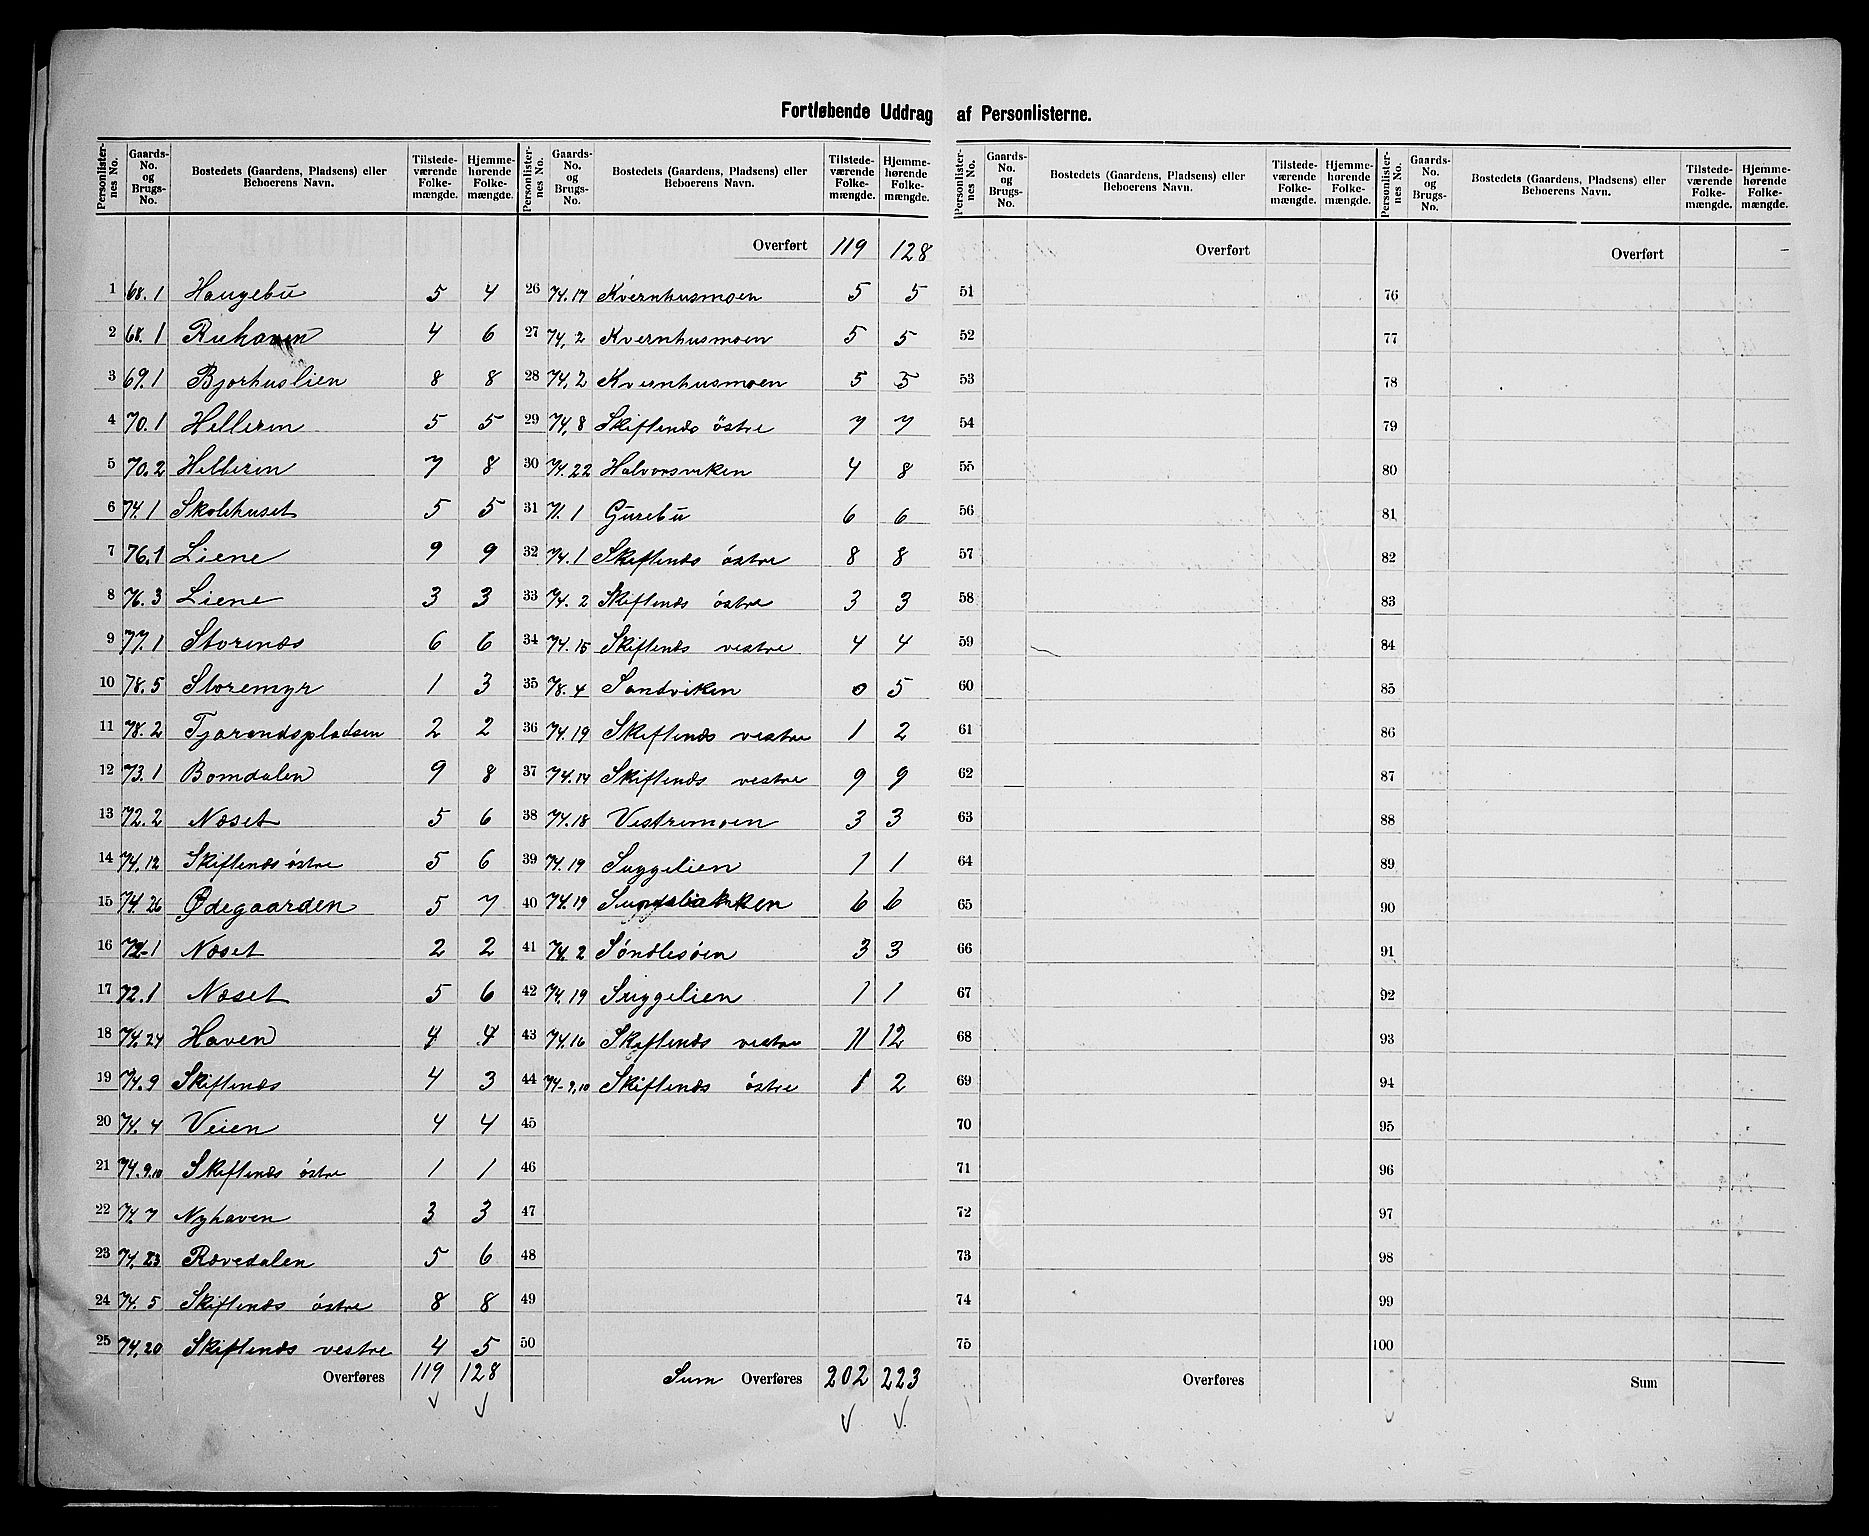 Fortløbende Uddrag af Personlisterne.
Personlister-nes No. Gaards-No. og Brugs-No. Bostedets (Gaardens, Pladsens) eller Beboerens Navn. Tilstede-værende Folke-mængde. Hjemme-hørende Folke-mængde.
1 68.1 Haugebu 5 4
2 68.1 Ruhaven 4 6
3 69.1 Bjorhuslien 8 8
4 70.1 Helleren 5 5
5 70.2 Helleren 7 8
6 74.1 Skolehuset 5 5
7 76.1 Liene 9 9
8 76.3 Liene 3 3
9 77.1 Storenæs 6 6
10 78.5 Storemyr 1 3
11 78.2 Tjorendspladsen 2 2
12 73.1 Bomdalen 9 8
13 72.2 Næset 5 6
14 74.12 Skiftenæs østre 5 6
15 74.26 Ødegaarden 5 7
16 72.1 Næset 2 2
17 72.1 Næset 5 6
18 74.24 Haven 4 4
19 74.9 Skiftenæs 4 3
20 74.4 Veien 4 4
21 74.9.10 Skiftenæs østre 1 1
22 74.7 Nyhaven 3 3
23 74.23 Rævedalen 5 6
24 74.5 Skiftenæs østre 8 8
25 74.20 Skiftenæs vestre 4 5
Overføres 119 128
Personlister-nes No. Gaards-No. og Brugs-No. Bostedets (Gaardens, Pladsens) eller Beboerens Navn. Tilstede-værende Folke-mængde. Hjemme-hørende Folke-mængde.
Overført 119 128
26 74.17 Kvernhusmoen 5 5
27 74.2 Kvernhusmoen 5 5
28 74.2 Kvernhusmoen 5 5
29 74.8 Skiftenæs østre 7 7
30 74.22 Halvorsviken 4 8
31 71.1 Gurebu 6 6
32 74.1 Skiftenæs østre 8 8
33 74.2 Skiftenæs østre 3 3
34 74.15 Skiftenæs vestre 4 4
35 78.4 Sandviken 0 5
36 74.19 Skiftenæs vestre 1 2
37 74.14 Skiftenæs vestre 9 9
38 74.18 Vestremoen 3 3
39 74.19 Suggelien 1 1
40 74.19 6 6
41 74.2 Søndlesøen 3 3
42 74.19 Suggelien 1 1
43 74.16 Skiftenæs vestre 11 12
44 74-9,10 Skiftenæs østre 1 2
45
46
47
48
49
50
Sum Overføres 202 223
Personlister-nes No. Gaards-No. og Brugs-No. Bostedets (Gaardens, Pladsens) eller Beboerens Navn. Tilstede-værende Folke-mængde. Hjemme-hørende Folke-mængde.
Overført
51
52
53
54
55
56
57
58
59
60
61
62
63
64
65
66
67
68
69
70
71
72
73
74
75
Overføres
Personlister-nes No. Gaards-No. og Brugs-No. Bostedets (Gaardens, Pladsens) eller Beboerens Navn. Tilstede-værende Folke-mængde. Hjemme-hørende Folke-mængde.
Overført
76
77
78
79
80
81
82
83
84
85
86
87
88
89
90
91
92
93
94
95
96
97
98
99
100
Sum